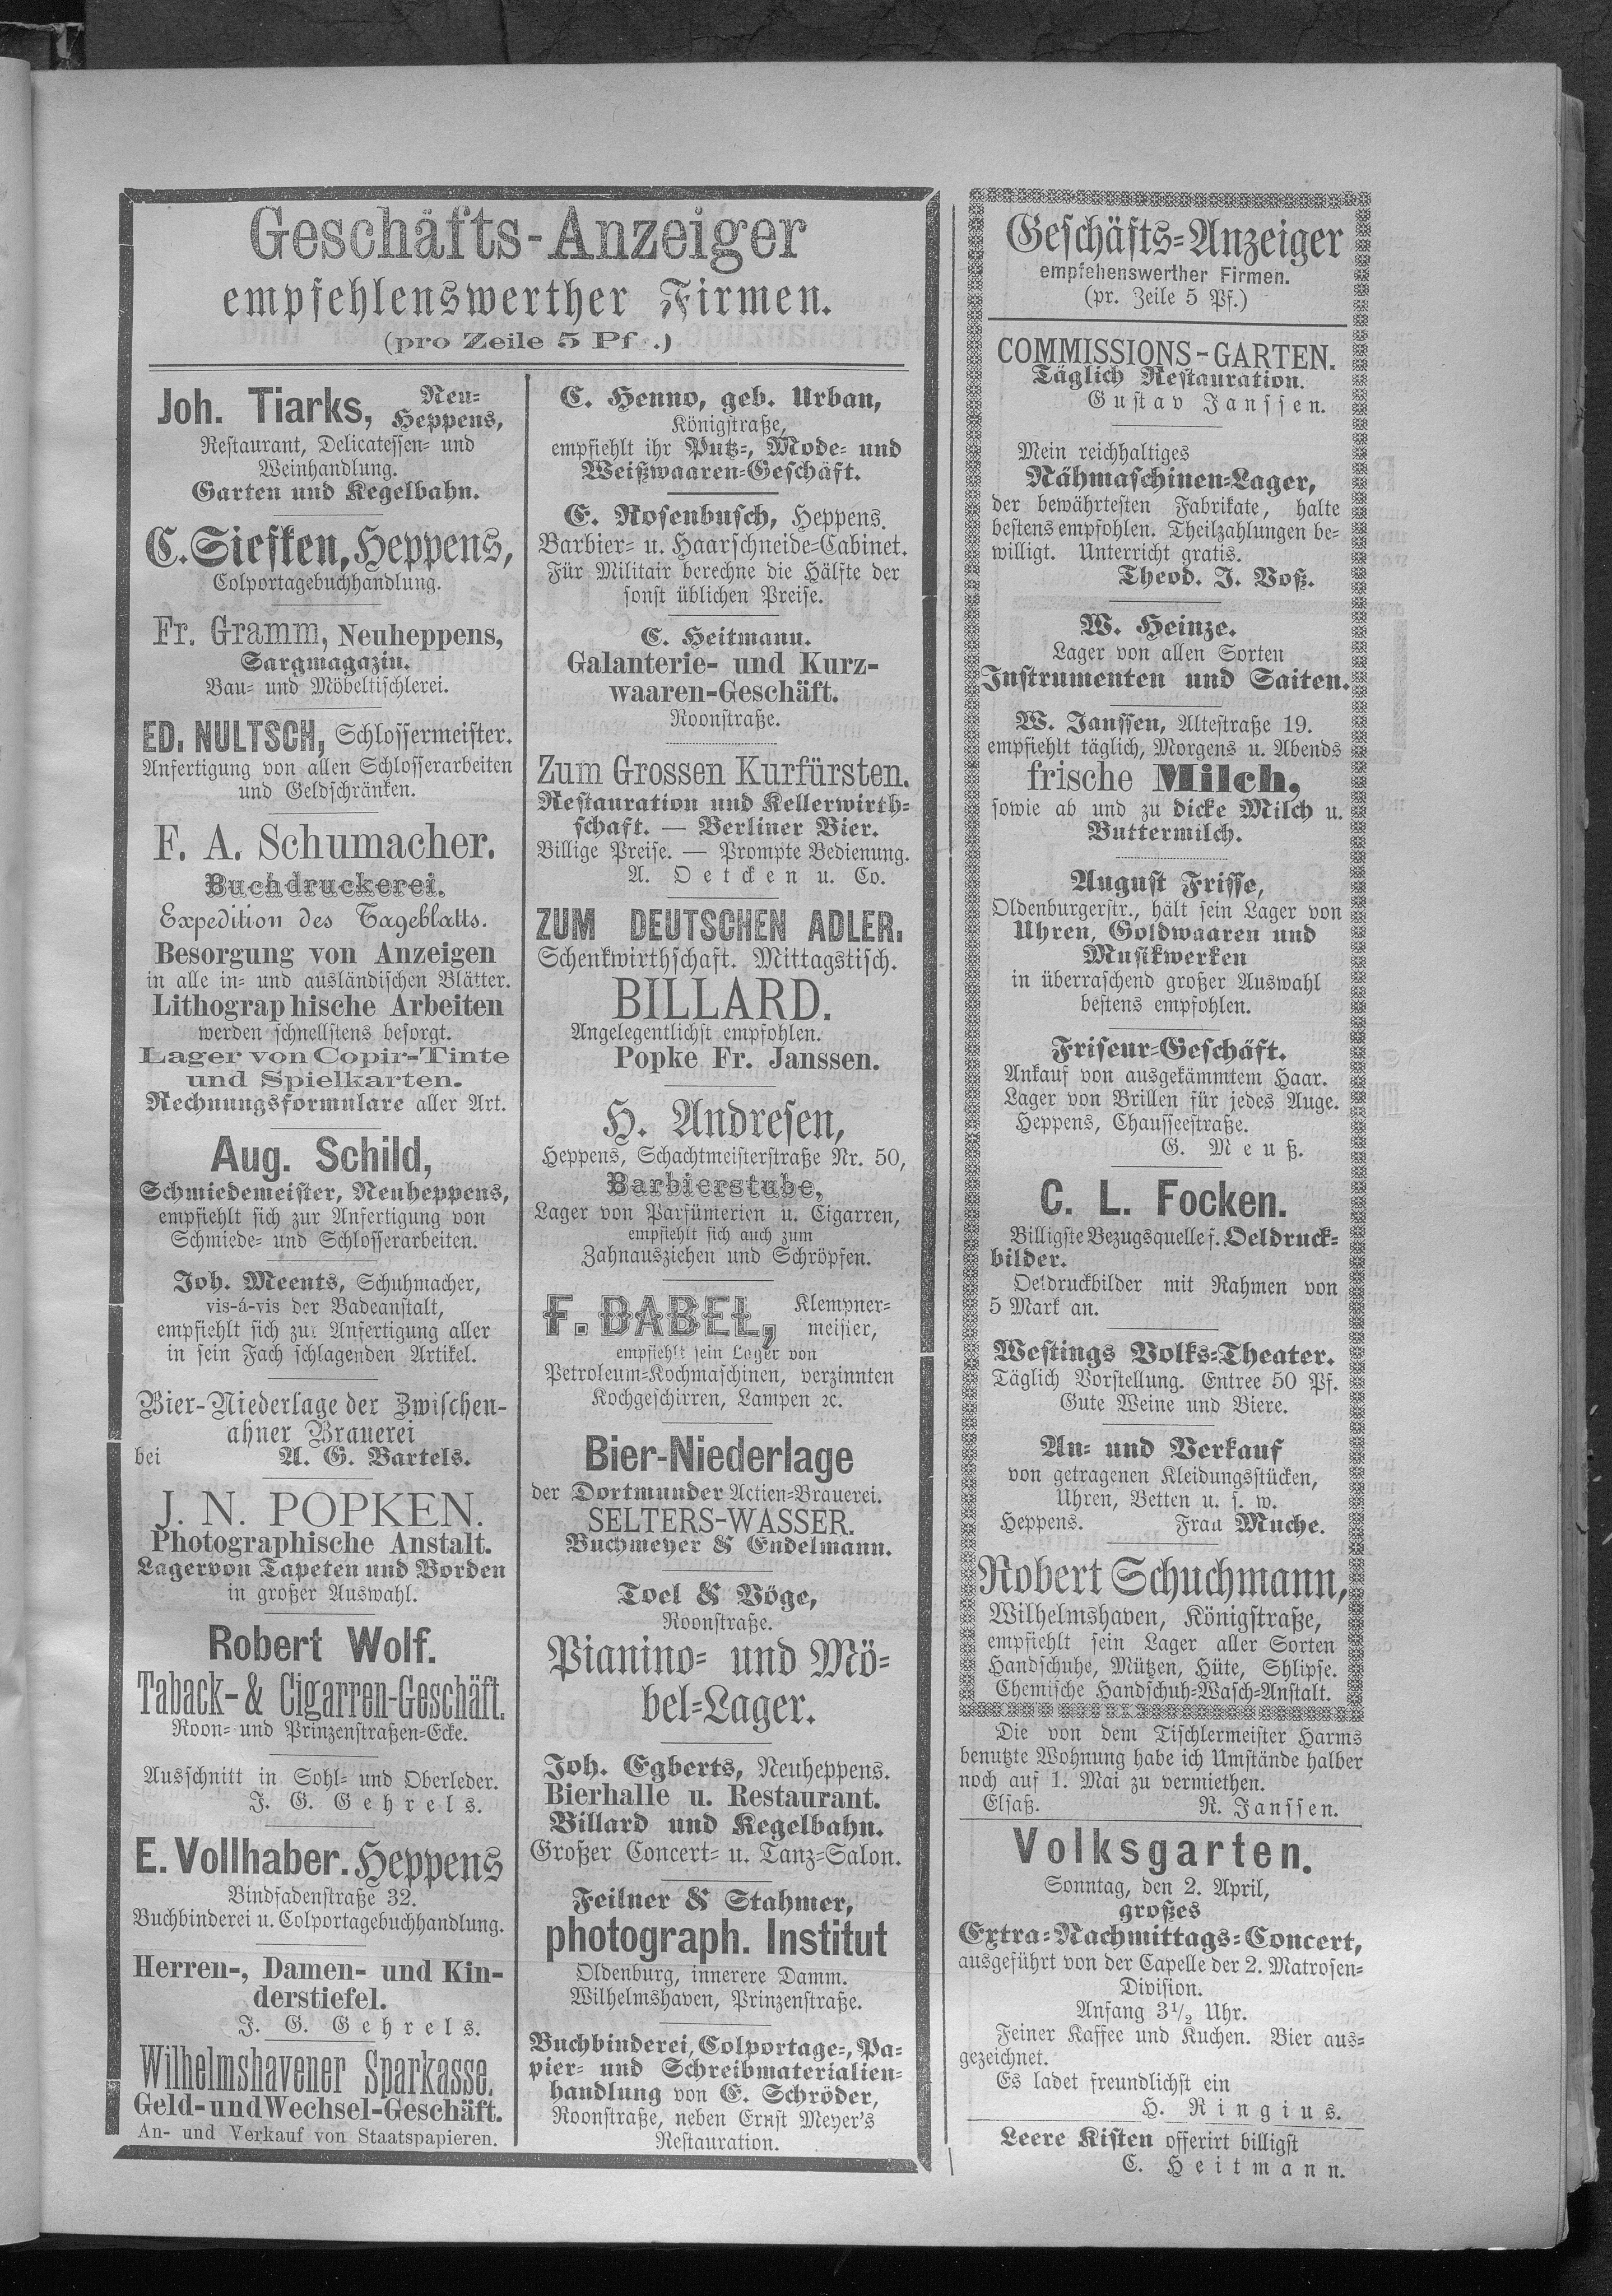 Geschäfts-Anzeiger
empfehlenswerther Firmen.
(pro Zeile 5 Pf.)
Joh. Tiarks, Neu-
Heppens,
Restaurant, Delicatessen- und
Weinhandlung.
Garten und Kegelbahn.
C. Siefken, Heppens,
Colportagebuchhandlung.
Fr. Gramm, Neuheppens,
Sargmagazin.
Bau- und Möbeltischlerei.
ED. NULTSCH, Schlossermeister.
Anfertigung von allen Schlosserarbeiten
und Geldschränken.
F. A. Schumacher.
Buchdruckerei.
Expedition des Tageblatts.
Besorgung von Anzeigen
in alle in- und ausländischen Blätter.
Lithographische Arbeiten
werden schnellstens besorgt.
Lager von Copir-Tinte
und Spielkarten.
Rechnungsformulare aller Art.
Aug. Schild,
Schmiedemeister, Neuheppens,
empfiehlt sich zur Anfertigung von
Schmiede- und Schlosserarbeiten.
Joh. Meents, Schuhmacher,
vis-á-vis der Badeanstalt,
empfiehlt sich zur Anfertigung aller
in sein Fach schlagenden Artikel.
Bier-Niederlage der Zwischen-
ahner Brauerei
bei A. G. Bartels.
J. N. POPKEN.
Photographische Anstalt.
Lager von Tapeten und Borden
in großer Auswahl.
Robert Wolf.
Taback- & Cigarren-Geschäft.
Roon- und Prinzenstraßen-Ecke.
Ausschnitt in Sohl- und Oberleder.
J. G. Gehrels.
E. Vollhaber. Heppens
Bindfadenstraße 32.
Buchbinderei u. Colportagebuchhandlung.
Herren-, Damen- und Kin-
derstiefel.
J. G. Gehrels.
Wilhelmshavener Sparkasse.
Geld- und Wechsel-Geschäft.
An- und Verkauf von Staatspapieren.
C. Henno, geb. Urban,
Königstraße,
empfiehlt ihr Putz-, Mode- und
Weißwaaren-Geschäft.
E. Rosenbusch, Heppens.
Barbier- u. Haarschneide-Cabinet.
Für Militair berechne die Hälfte der
sonst üblichen Preise.
C. Heitmann.
Galanterie- und Kurz-
waaren-Geschäft.
Roonstraße.
Zum Grossen Kurfürsten.
Restauration und Kellerwirth-
schaft. — Berliner Bier.
Billige Preise. — Prompte Bedienung.
A. Oetcken u. Co.
ZUM DEUTSCHEN ADLER.
Schenkwirthschaft. Mittagstisch.
BILLARD.
Angelegentlichst empfohlen.
Popke Fr. Janssen.
H. Andresen,
Heppens, Schachtmeisterstraße Nr. 50,
Barbierstube,
Lager von Parfümerien u. Cigarren,
empfiehlt sich auch zum
Zahnausziehen und Schröpfen.
F. DABEL, Klempner-
meister,
empfiehlt sein Lager von
Petroleum-Kochmaschinen, verzinnten
Kochgeschirren, Lampen ꝛc.
Bier-Niederlage
der Dortmunder Actien-Brauerei.
SELTERS-WASSER.
Buchmeyer & Endelmann.
Toel & Vöge,
Roonstraße.
Pianino- und Mö-
bel-Lager.
Joh. Egberts, Neuheppens.
Bierhalle u. Restaurant.
Billard und Kegelbahn.
Großer Concert- u. Tanz-Salon.
Feilner & Stahmer,
photograph. Institut
Oldenburg, innerere Damm.
Wilhelmshaven, Prinzenstraße.
Buchbinderei, Colportage-, Pa-
pier- und Schreibmaterialien-
handlung von E. Schröder,
Roonstraße, neben Ernst Meyer's
Restauration.
Geschäfts-Anzeiger
empfehenswerther Firmen.
(pr. Zeile 5 Pf.)
COMMISSIONS-GARTEN.
Täglich Restauration.
Gustav Janssen.
Mein reichhaltiges
Nähmaschinen-Lager,
der bewährtesten Fabrikate, halte
bestens empfohlen. Theilzahlungen be-
willigt. Unterricht gratis.
Theod. J. Voß.
W. Heinze.
Lager von allen Sorten
Instrumenten und Saiten.
W. Janssen, Altestraße 19.
empfiehlt täglich, Morgens u. Abends
frische Milch,
sowie ab und zu dicke Milch u.
Buttermilch.
August Frisse,
Oldenburgerstr., hält sein Lager von
Uhren, Goldwaaren und
Musikwerken
in überraschend großer Auswahl
bestens empfohlen.
Friseur-Geschäft.
Ankauf von ausgekämmtem Haar.
Lager von Brillen für jedes Auge.
Heppens, Chausseestraße.
G. Meuß.
C. L. Focken.
Billigste Bezugsquelle f. Oeldruck-
bilder.
Oeldruckbilder mit Rahmen von
5 Mark an.
Westings Volks-Theater.
Täglich Vorstellung. Entree 50 Pf.
Gute Weine und Biere.
An- und Verkauf
von getragenen Kleidungsstücken,
Uhren, Betten u. s. w.
Heppens. Frau Muche.
Robert Schuchmann,
Wilhelmshaven, Königstraße,
empfiehlt sein Lager aller Sorten
Handschuhe, Mützen, Hüte, Shlipse.
Chemische Handschuh-Wasch-Anstalt.
Die von dem Tischlermeister Harms
benutzte Wohnung habe ich Umstände halber
noch auf 1. Mai zu vermiethen.
Elsaß. R. Janssen.
Volksgarten.
Sonntag, den 2. April,
großes
Extra-Nachmittags-Concert,
ausgeführt von der Capelle der 2. Matrosen-
Division.
Anfang 3½ Uhr.
Feiner Kaffee und Kuchen. Bier aus-
gezeichnet.
Es ladet freundlichst ein
H. Ringius.
Leere Kisten offerirt billigst
C. Heitmann.